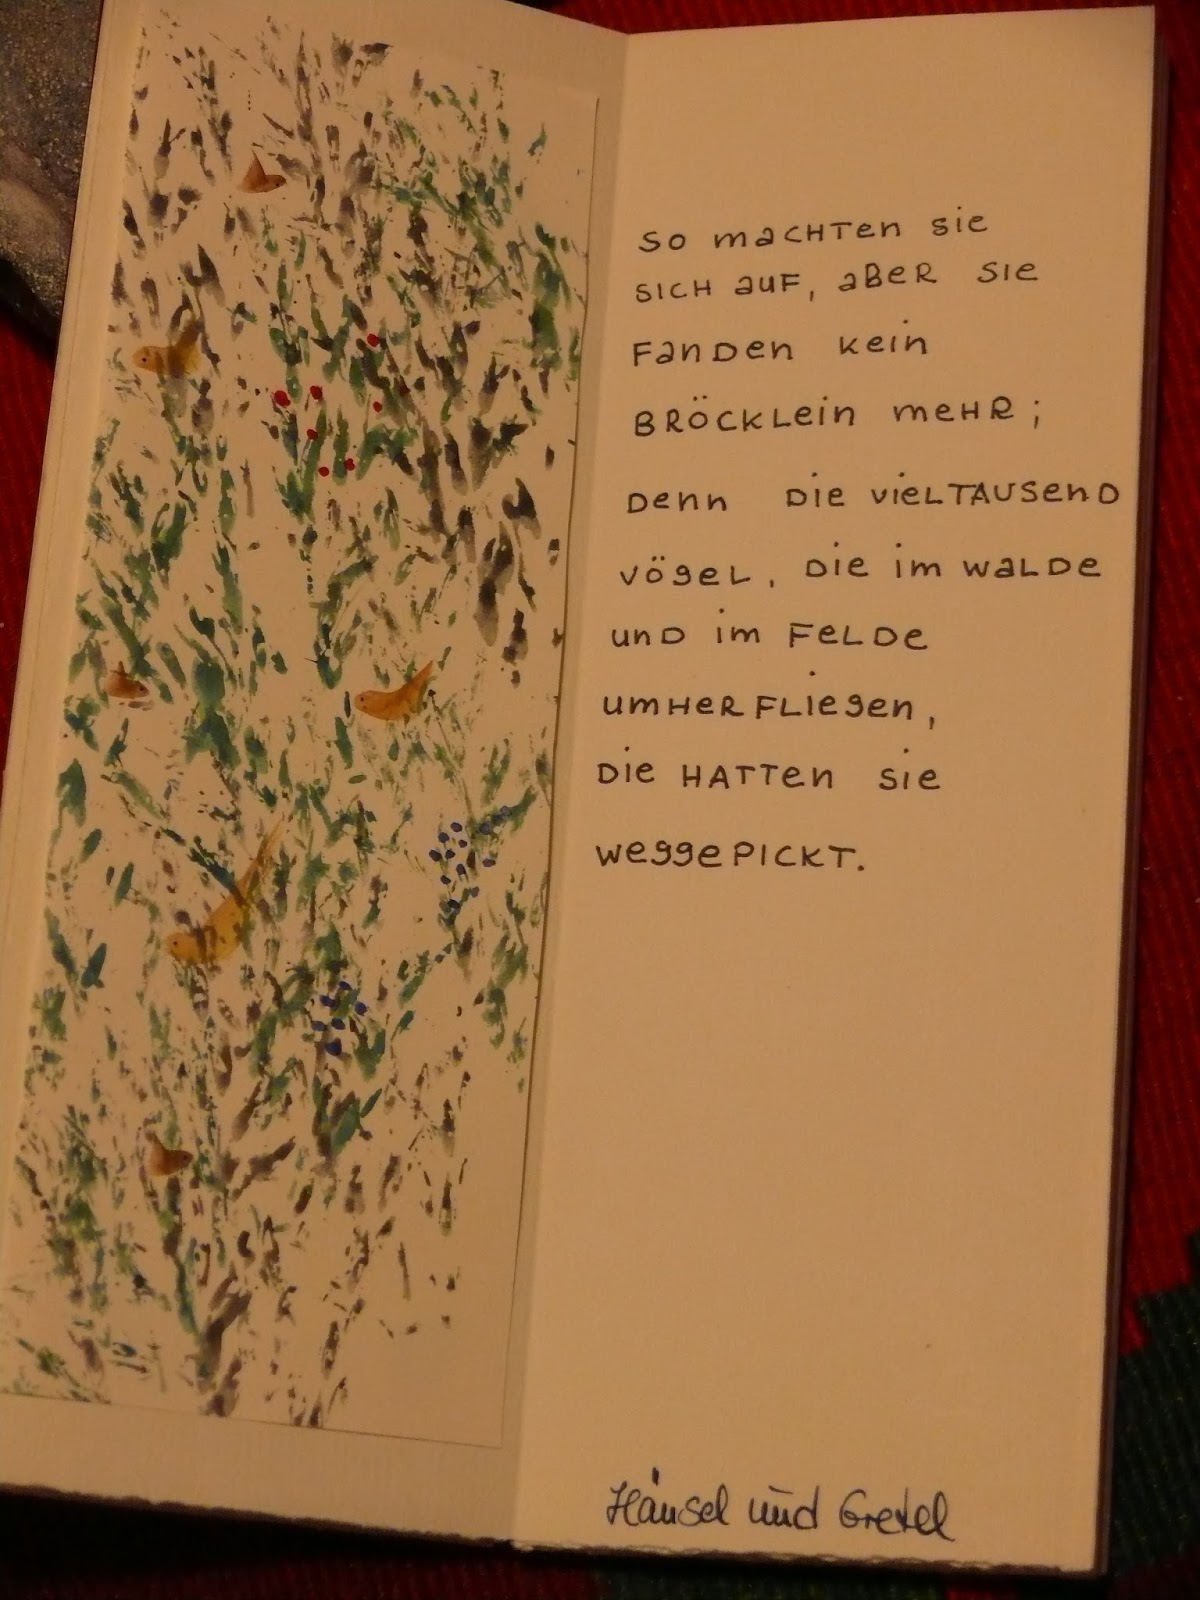 so machten sie
sich auf, aber sie
fanden kein
Bröcklein mehr;
denn die vieltausend
vögel, die im walde
und im felde
umherfliegen,
die hatten sie
weggepickt.
Hänsel und Gretel